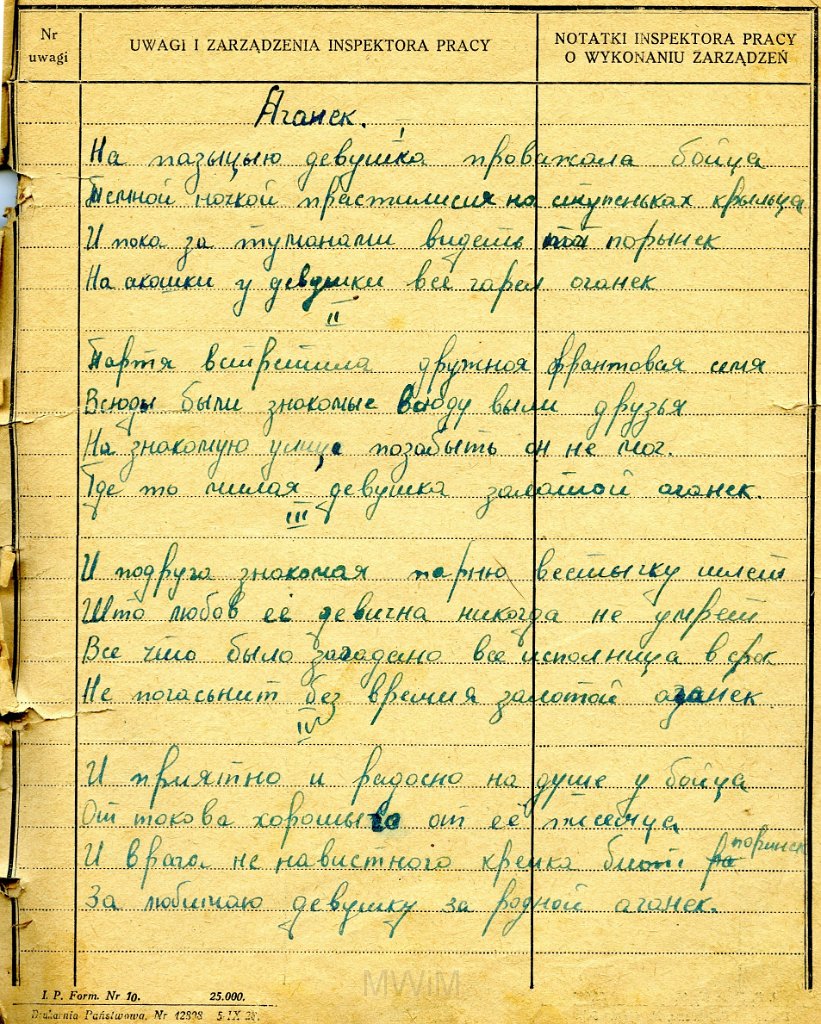 Nr uwagi
UWAGI I ZARZĄDZENIA INSPEKTORA PRACY
NOTATKI INSPEKTORA PRACY
O WYKONANIU ZARZĄDZEŃ
Аганек.
I
На пазыцыю девушка праважала бойца
Темной ночкой прастилисия на ступеньках крыльца
И пока за туманами видеть порынек
На акошки у девушки всё гарел оганек
II
Партя встретила дружная франтовая семя
Всюды были знакомые всюду были друзья
На знакомую улице позабыть он не мог.
Где то милая девушка залатой аганек.
III
И подруга знакомая парню вестычку шлет
Што любов её девична никогда не умрет
Все что было загадано все исполница в срок
Не погасьнит без времия залотой аганек
IV
И приятно и радосно на душе у бойца
От токова хорошыго от её писмица
И врага не навистного крепка биот поринек
За любимаю девушку за родной аганек.
I. P. Form. Nr 10. 25.000.
Drukarnia Państwowa. Nr 12898 5 IX 28.
MWiM